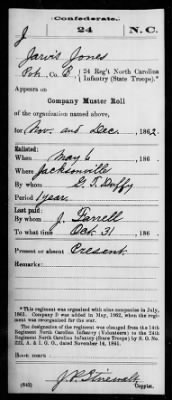 Confederate.
J 24 N.C.
Jarvis Jones
Co. B, 24 Reg't North Carolina
Infantry (State Troops).*
Appears on
Company Muster Roll
of the organization named above,
for Nov. and Dec., 1862.
Enlisted:
When May 6, 186 .
Where Jacksonville
By whom G. T. Duffy
Period 1 year.
Last paid:
By whom J. Farrell
To what time Oct. 31, 186 .
Present or absent Present.
Remarks:
*This regiment was organized with nine companies in July,
1861. Company D was added in May, 1862, when the regi-
ment was reorganized for the war.
The designation of the regiment was changed from the 14th
Regiment North Carolina Infantry (Volunteers) to the 24th
Regiment North Carolina Infantry (State Troops) by S. O. No.
222, A. & I. G. O., dated November 14, 1861.
Book mark:
(642)
Copyist.